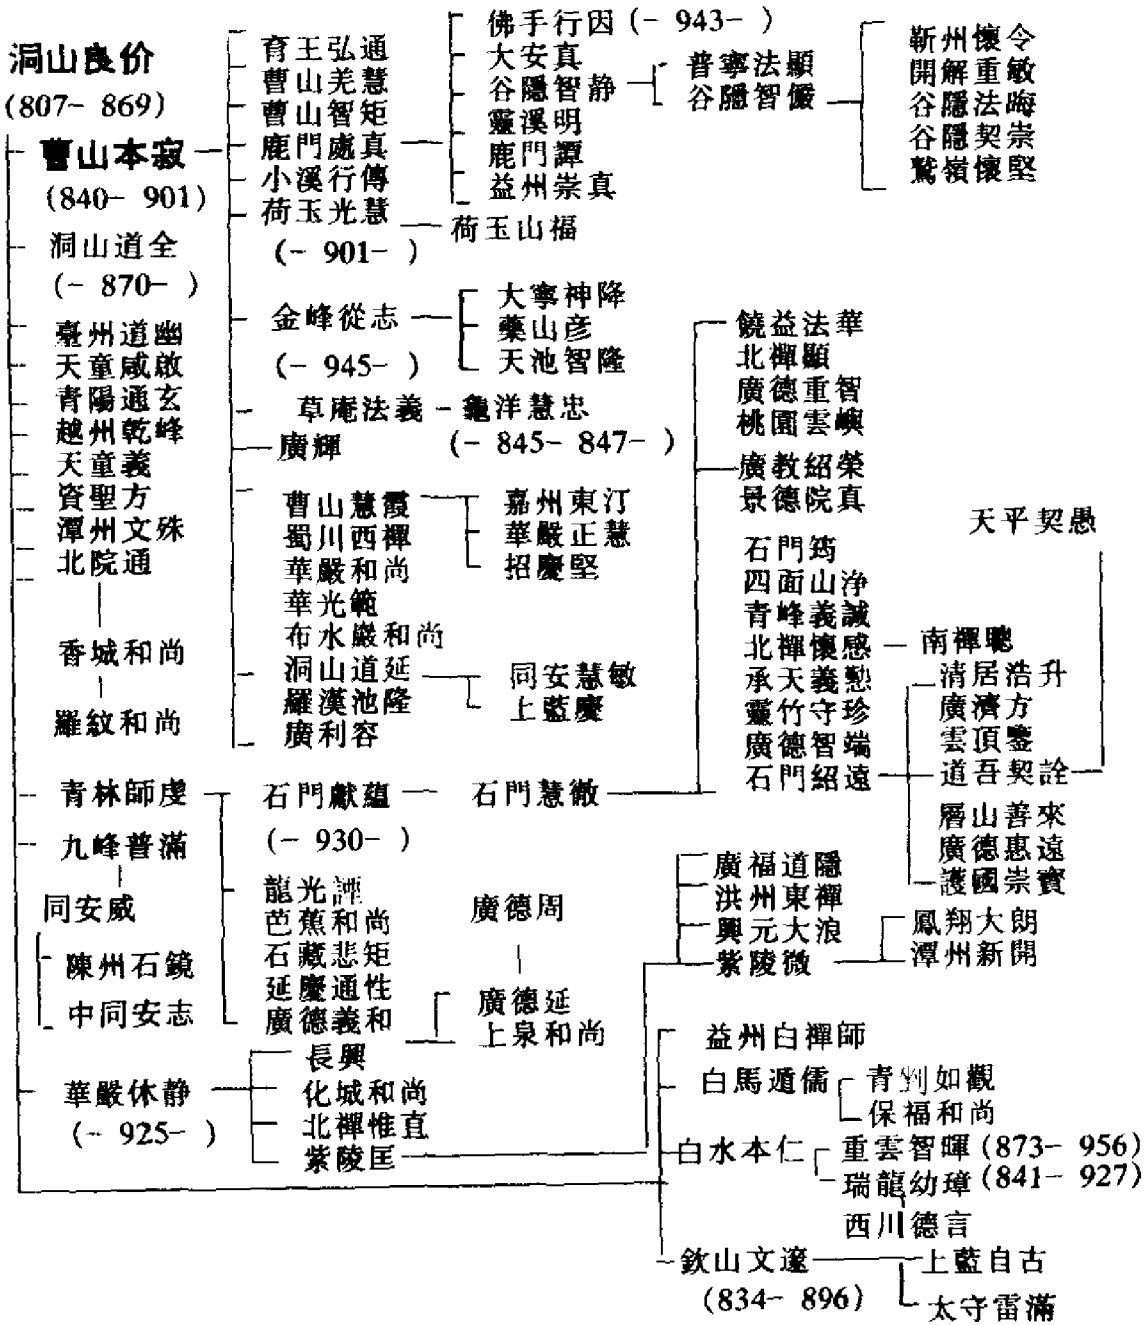 洞山良价
(807- 869)
曹山本寂
(840- 901)
洞山道全
(- 870- )
臺州道幽
天童咸啟
青陽通玄
越州乾峰
天童義
資聖方
潭州文殊
北院通
香城和尚
羅紋和尚
青林師虔
九峰普滿
同安威
陳州石鏡
中同安志
華嚴休静
(- 925- )
育王弘通
曹山羌慧
曹山智矩
鹿門處真
小溪行傳
荷玉光慧
(- 901- )
荷玉山福
金峰從志
(- 945- )
草庵法義
龜洋慧忠
(- 845- 847- )
廣輝
曹山慧霞
蜀川西禪
華嚴和尚
華光範
布水巖和尚
洞山道延
羅漢池隆
廣利容
石門獻蘊
(- 930- )
龍光諲
芭蕉和尚
石藏悲矩
延慶通性
廣德義和
長興
化城和尚
北禪惟直
紫陵匡
佛手行因 (- 943- )
大安真
谷隱智静
靈溪明
鹿門譚
益州崇真
普寧法顯
谷隱智儼
靳州懷令
開解重敏
谷隱法晦
谷隱契崇
鷲嶺懷堅
大寧神降
藥山彦
天池智隆
嘉州東汀
華嚴正慧
招慶堅
同安慧敏
上藍慶
石門慧徹
廣德周
廣德延
上泉和尚
饒益法華
北禪顯
廣德重智
桃園雲嶼
廣教紹榮
景德院真
石門筠
四面山浄
青峰義誠
北禪懷感
承天義懃
靈竹守珍
廣德智端
石門紹遠
天平契愚
南禪聰
清居浩升
廣濟方
雲頂鑒
道吾契詮
層山善來
廣德惠遠
護國崇寶
廣福道隱
洪州東禪
興元大浪
紫陵微
鳳翔大朗
潭州新開
益州白禪師
白馬遁儒
青剉如觀
保福和尚
白水本仁
重雲智暉 (873- 956)
瑞龍幼璋 (841- 927)
西川德言
欽山文邃
(834- 896)
上藍自古
太守雷滿